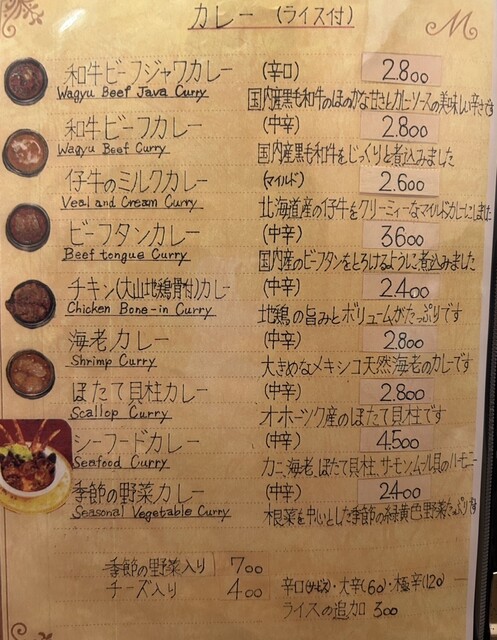 カレー (ライス付)
M
和牛ビーフジャワカレー (辛口) 2.800
Wagyu Beef Java Curry
国内産黒毛和牛のほのかな甘さとカレーソースの美味しい辛さです
和牛ビーフカレー (中辛) 2.800
Wagyu Beef Curry
国内産黒毛和牛をじっくりと煮込みました
仔牛のミルクカレー (マイルド) 2.600
Veal and Cream Curry
北海道産の仔牛をクリーミィーなマイルドカレーにしました
ビーフタンカレー (中辛) 3600
Beef tongue Curry
国内産のビーフタンをとろけるように煮込みました
チキン(大山地鶏骨付)カレー (中辛) 2.400
Chicken Bone-in Curry
地鶏の旨みとボリュームがたっぷりです
海老カレー (中辛) 2.800
Shrimp Curry
大きめなメキシコ天然海老のカレーです
ほたて貝柱カレー (中辛) 2.800
Scallop Curry
オホーツク産のほたて貝柱です
シーフードカレー (中辛) 4.500
Seafood Curry
カニ、海老、ほたて貝柱、サーモン、ムール貝のハーモニー
季節の野菜カレー (中辛) 2400
Seasonal Vegetable Curry
根菜を中心とした季節の緑黄色野菜たっぷりです
季節の野菜入り 700
チーズ入り 400
辛口(サービス)・大辛(60)・極辛(120)
ライスの追加 300